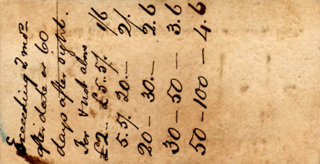 Exceeding 2 mos.
after date or 60
days after sight.
For & not above
£2 £5.5/ 1/6
5.5/. 20.— 2/.
20 — 30.— 2.6
30 — 50 — 3.6
50 - 100 — 4.6